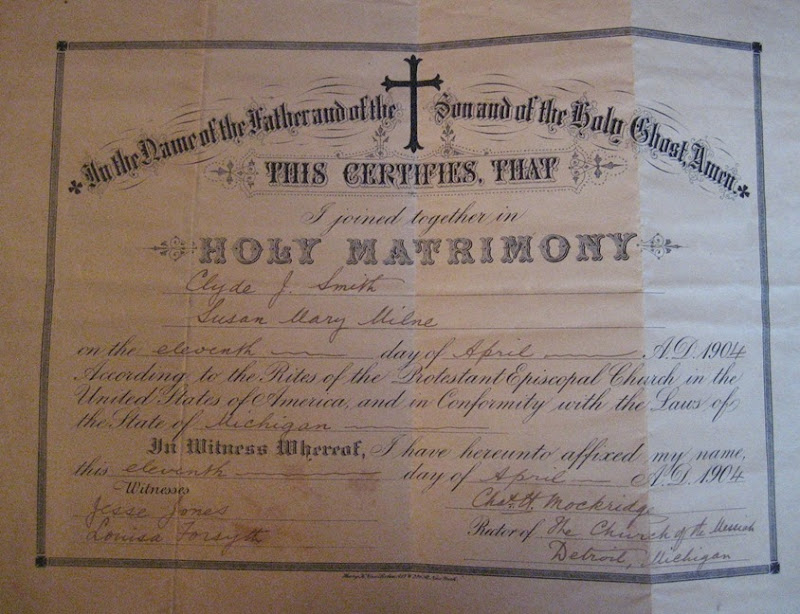 In the Name of the Father and of the Son and of the Holy Ghost, Amen.
THIS CERTIFIES, THAT
I joined together in
HOLY MATRIMONY
Clyde J. Smith
Susan Mary Milne
on the eleventh day of April A.D. 1904
According to the Rites of the Protestant Episcopal Church in the
United States of America, and in Conformity with the Laws of
the State of Michigan
In Witness Whereof, I have hereunto affixed my name,
this eleventh day of April A.D. 1904
Witnesses
Jesse Jones
Louisa Forsyth
Chas. H. Mockridge
Rector of The Church of the Messiah
Detroit, Michigan